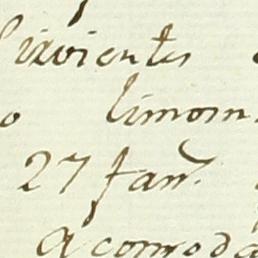 Sirvientes
o limosn
27 fan.s
acomoda